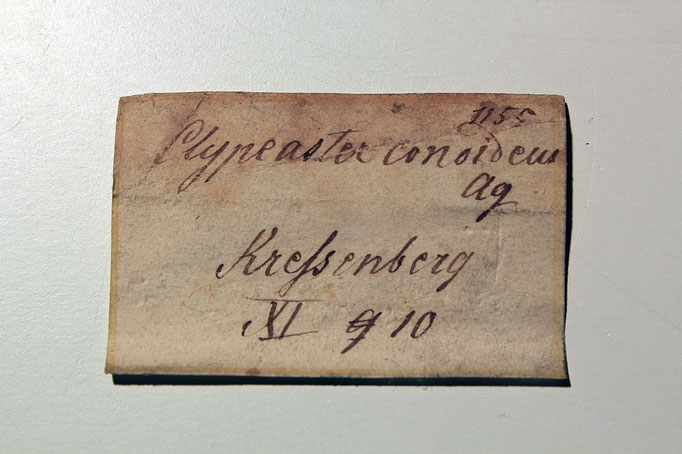 1155
Clypeaster conoideus
Ag
Kreſsenberg
XI g 10